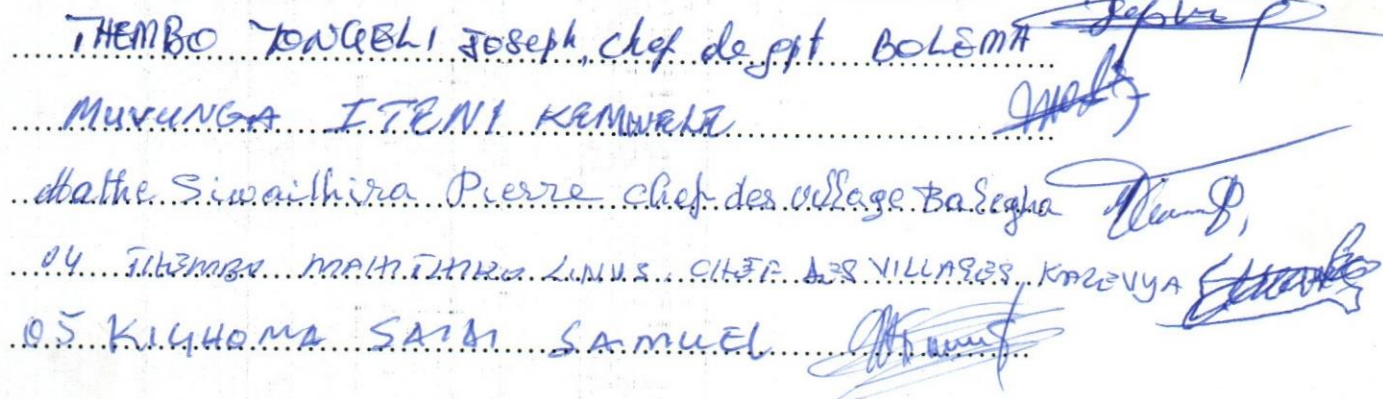 THEMBO YONGELI Joseph, chef de gpt BOLEMA
MUVUNGA ITENI KEMWELE
Mathe Siwailhira Pierre chef des village Balegha
04 THEMBO MAHITHIRO LINUS CHEF DES VILLAGES KAREVYA
05 KIGHOMA SAIDI SAMUEL